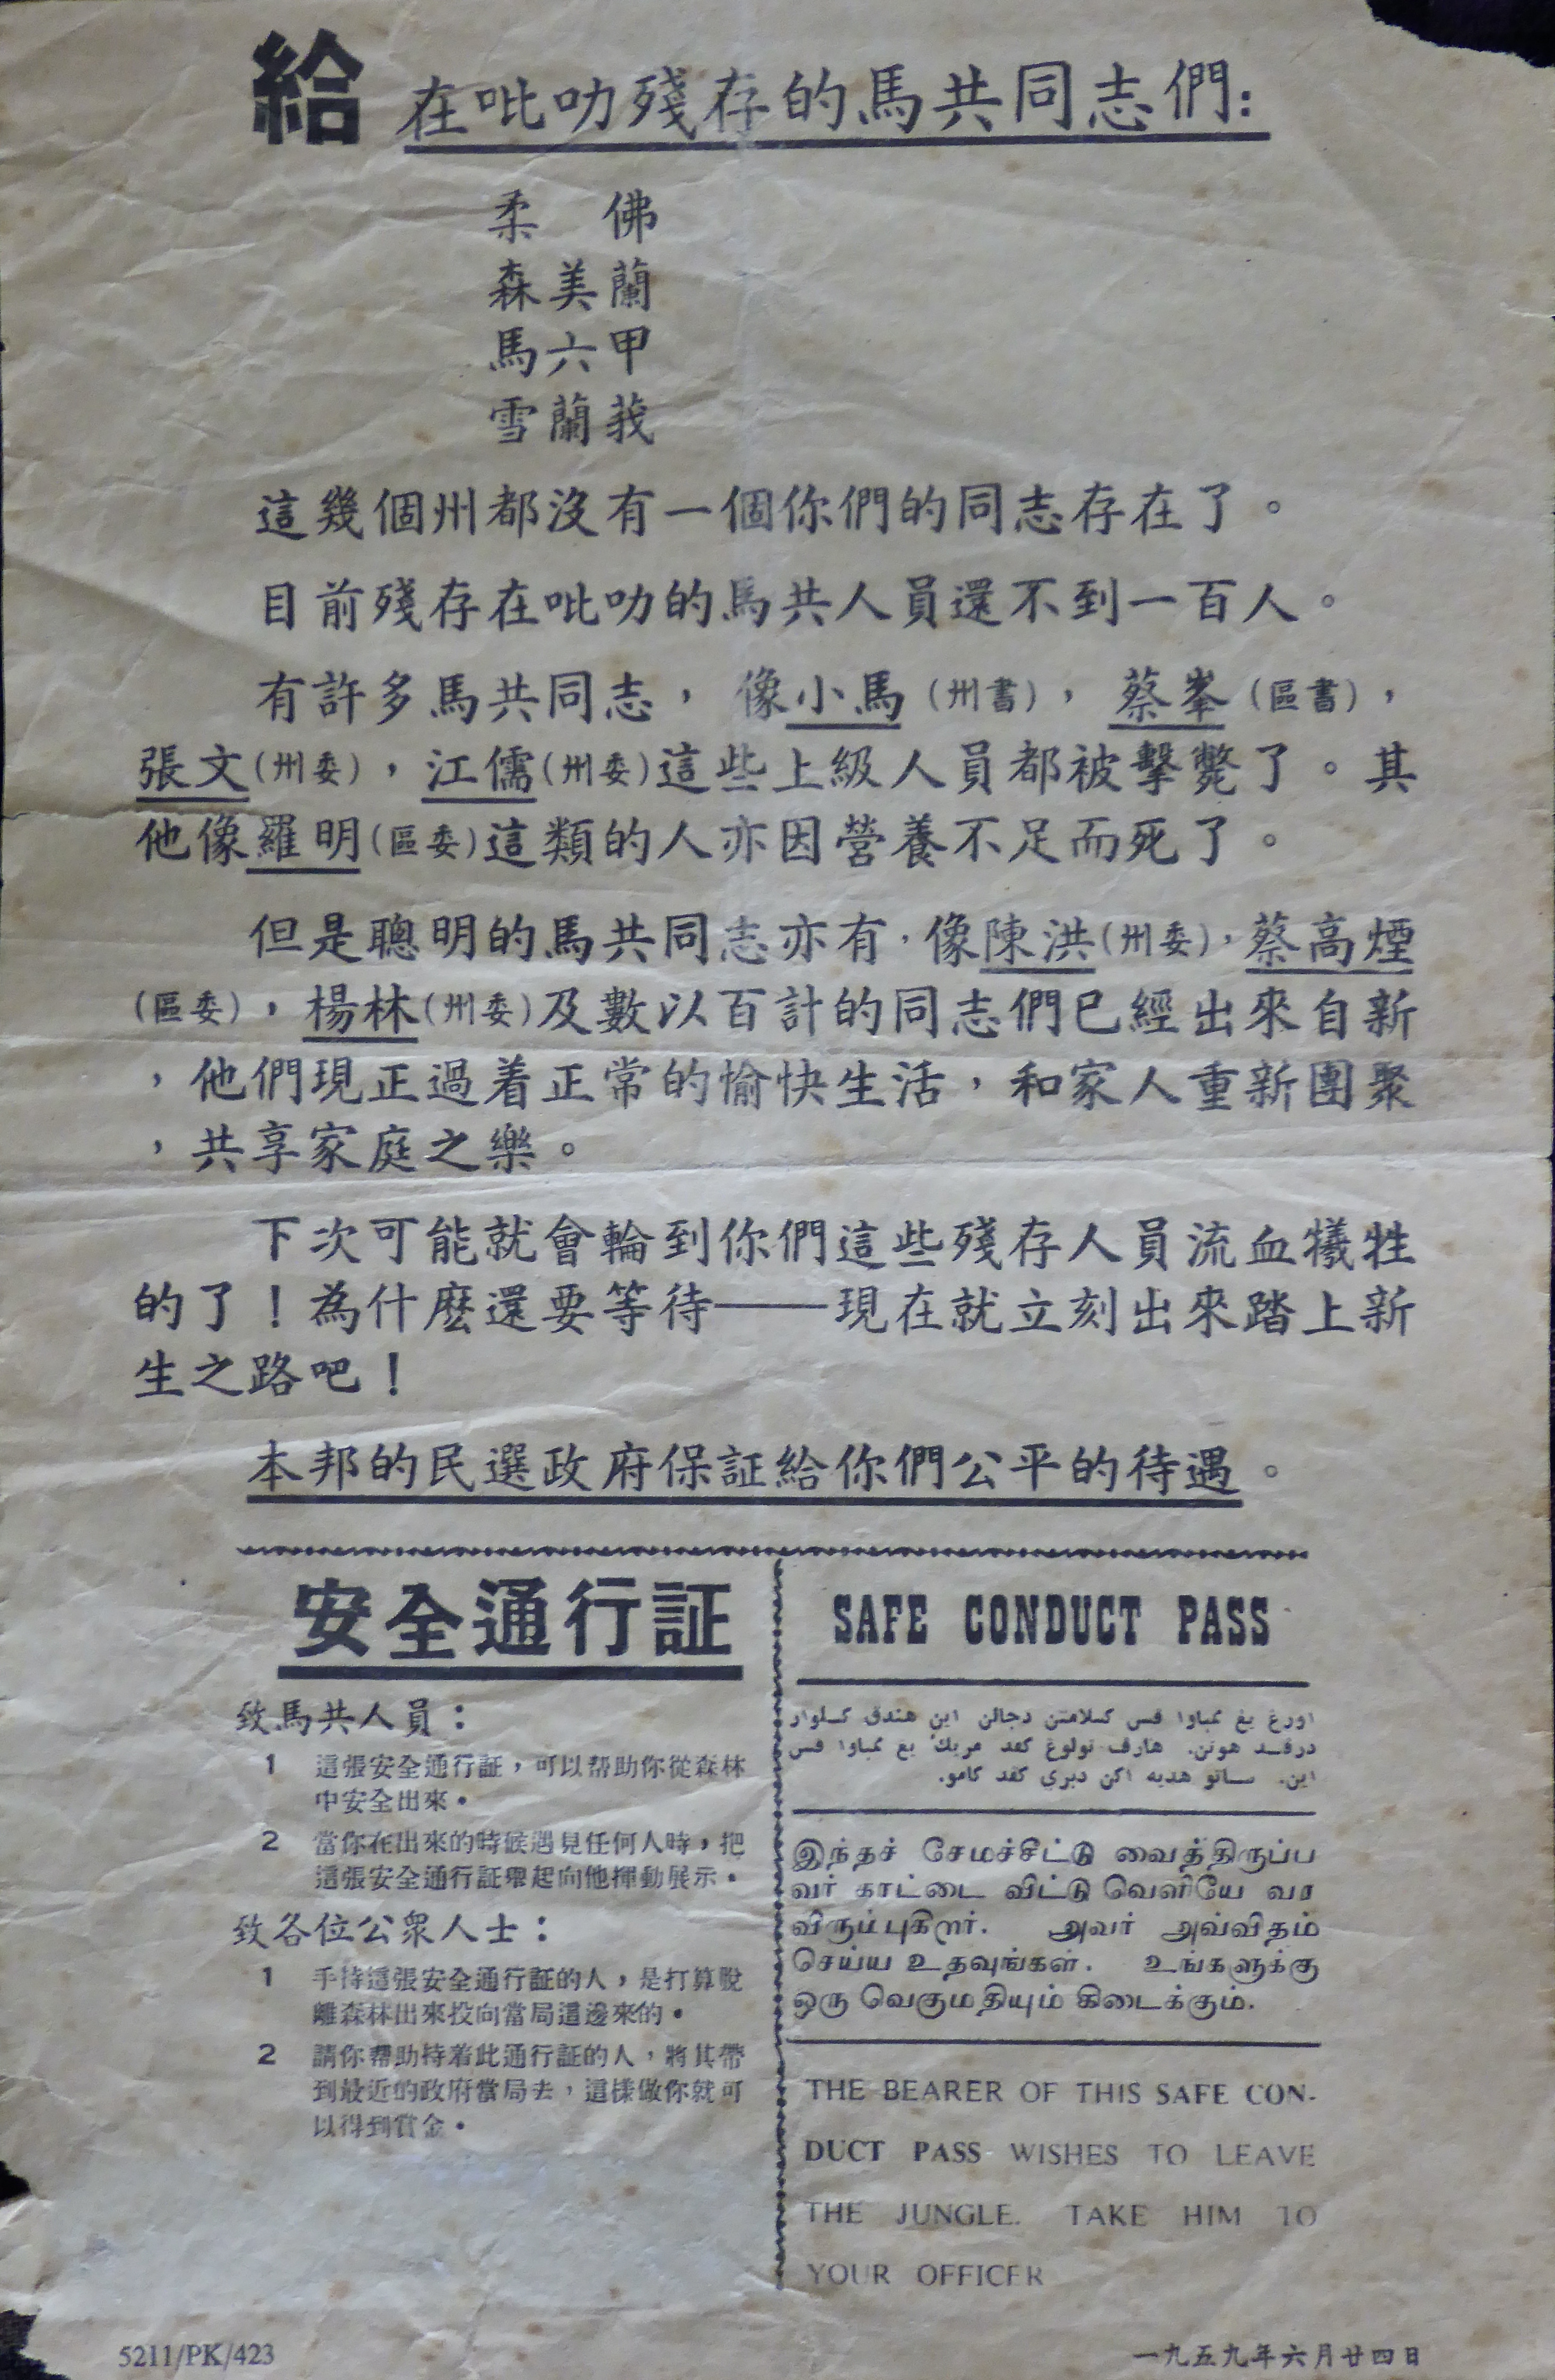 給 在吡叻殘存的馬共同志們：
柔　佛
森美蘭
馬六甲
雪蘭莪
這幾個州都沒有一個你們的同志存在了。
目前殘存在吡叻的馬共人員還不到一百人。
有許多馬共同志，像小馬（州書），蔡峯（區書），
張文（州委），江儒（州委）這些上級人員都被擊斃了。其
他像羅明（區委）這類的人亦因營養不足而死了。
但是聰明的馬共同志亦有，像陳洪（州委），蔡高煙
（區委），楊林（州委）及數以百計的同志們已經出來自新
，他們現正過着正常的愉快生活，和家人重新團聚
，共享家庭之樂。
下次可能就會輪到你們這些殘存人員流血犧牲
的了！為什麽還要等待——現在就立刻出來踏上新
生之路吧！
本邦的民選政府保証給你們公平的待遇。
安全通行証
致馬共人員：
1 這張安全通行証，可以帮助你從森林
中安全出來。
2 當你在出來的時候遇見任何人時，把
這張安全通行証舉起向他揮動展示。
致各位公衆人士：
1 手持這張安全通行証的人，是打算脫
離森林出來投向當局這邊來的。
2 請你帮助持着此通行証的人，將其帶
到最近的政府當局去，這樣做你就可
以得到賞金。
SAFE CONDUCT PASS
اورڠ يڠ ممباوا ڤس كسلامتن دجالن اين هندق كلوار
درڤد هوتن. هارڤ تولوڠ كڤد مريك٢ يڠ ممباوا ڤس
اين. ساتو هديه اكن دبري كڤد كامو.
இந்தச் சேமச்சீட்டு வைத்திருப்ப
வர் காட்டை விட்டு வெளியே வர
விரும்புகிறார். அவர் அவ்விதம்
செய்ய உதவுங்கள். உங்களுக்கு
ஒரு வெகுமதியும் கிடைக்கும்.
THE BEARER OF THIS SAFE CON-
DUCT PASS WISHES TO LEAVE
THE JUNGLE. TAKE HIM TO
YOUR OFFICER
5211/PK/423
一九五九年六月廿四日